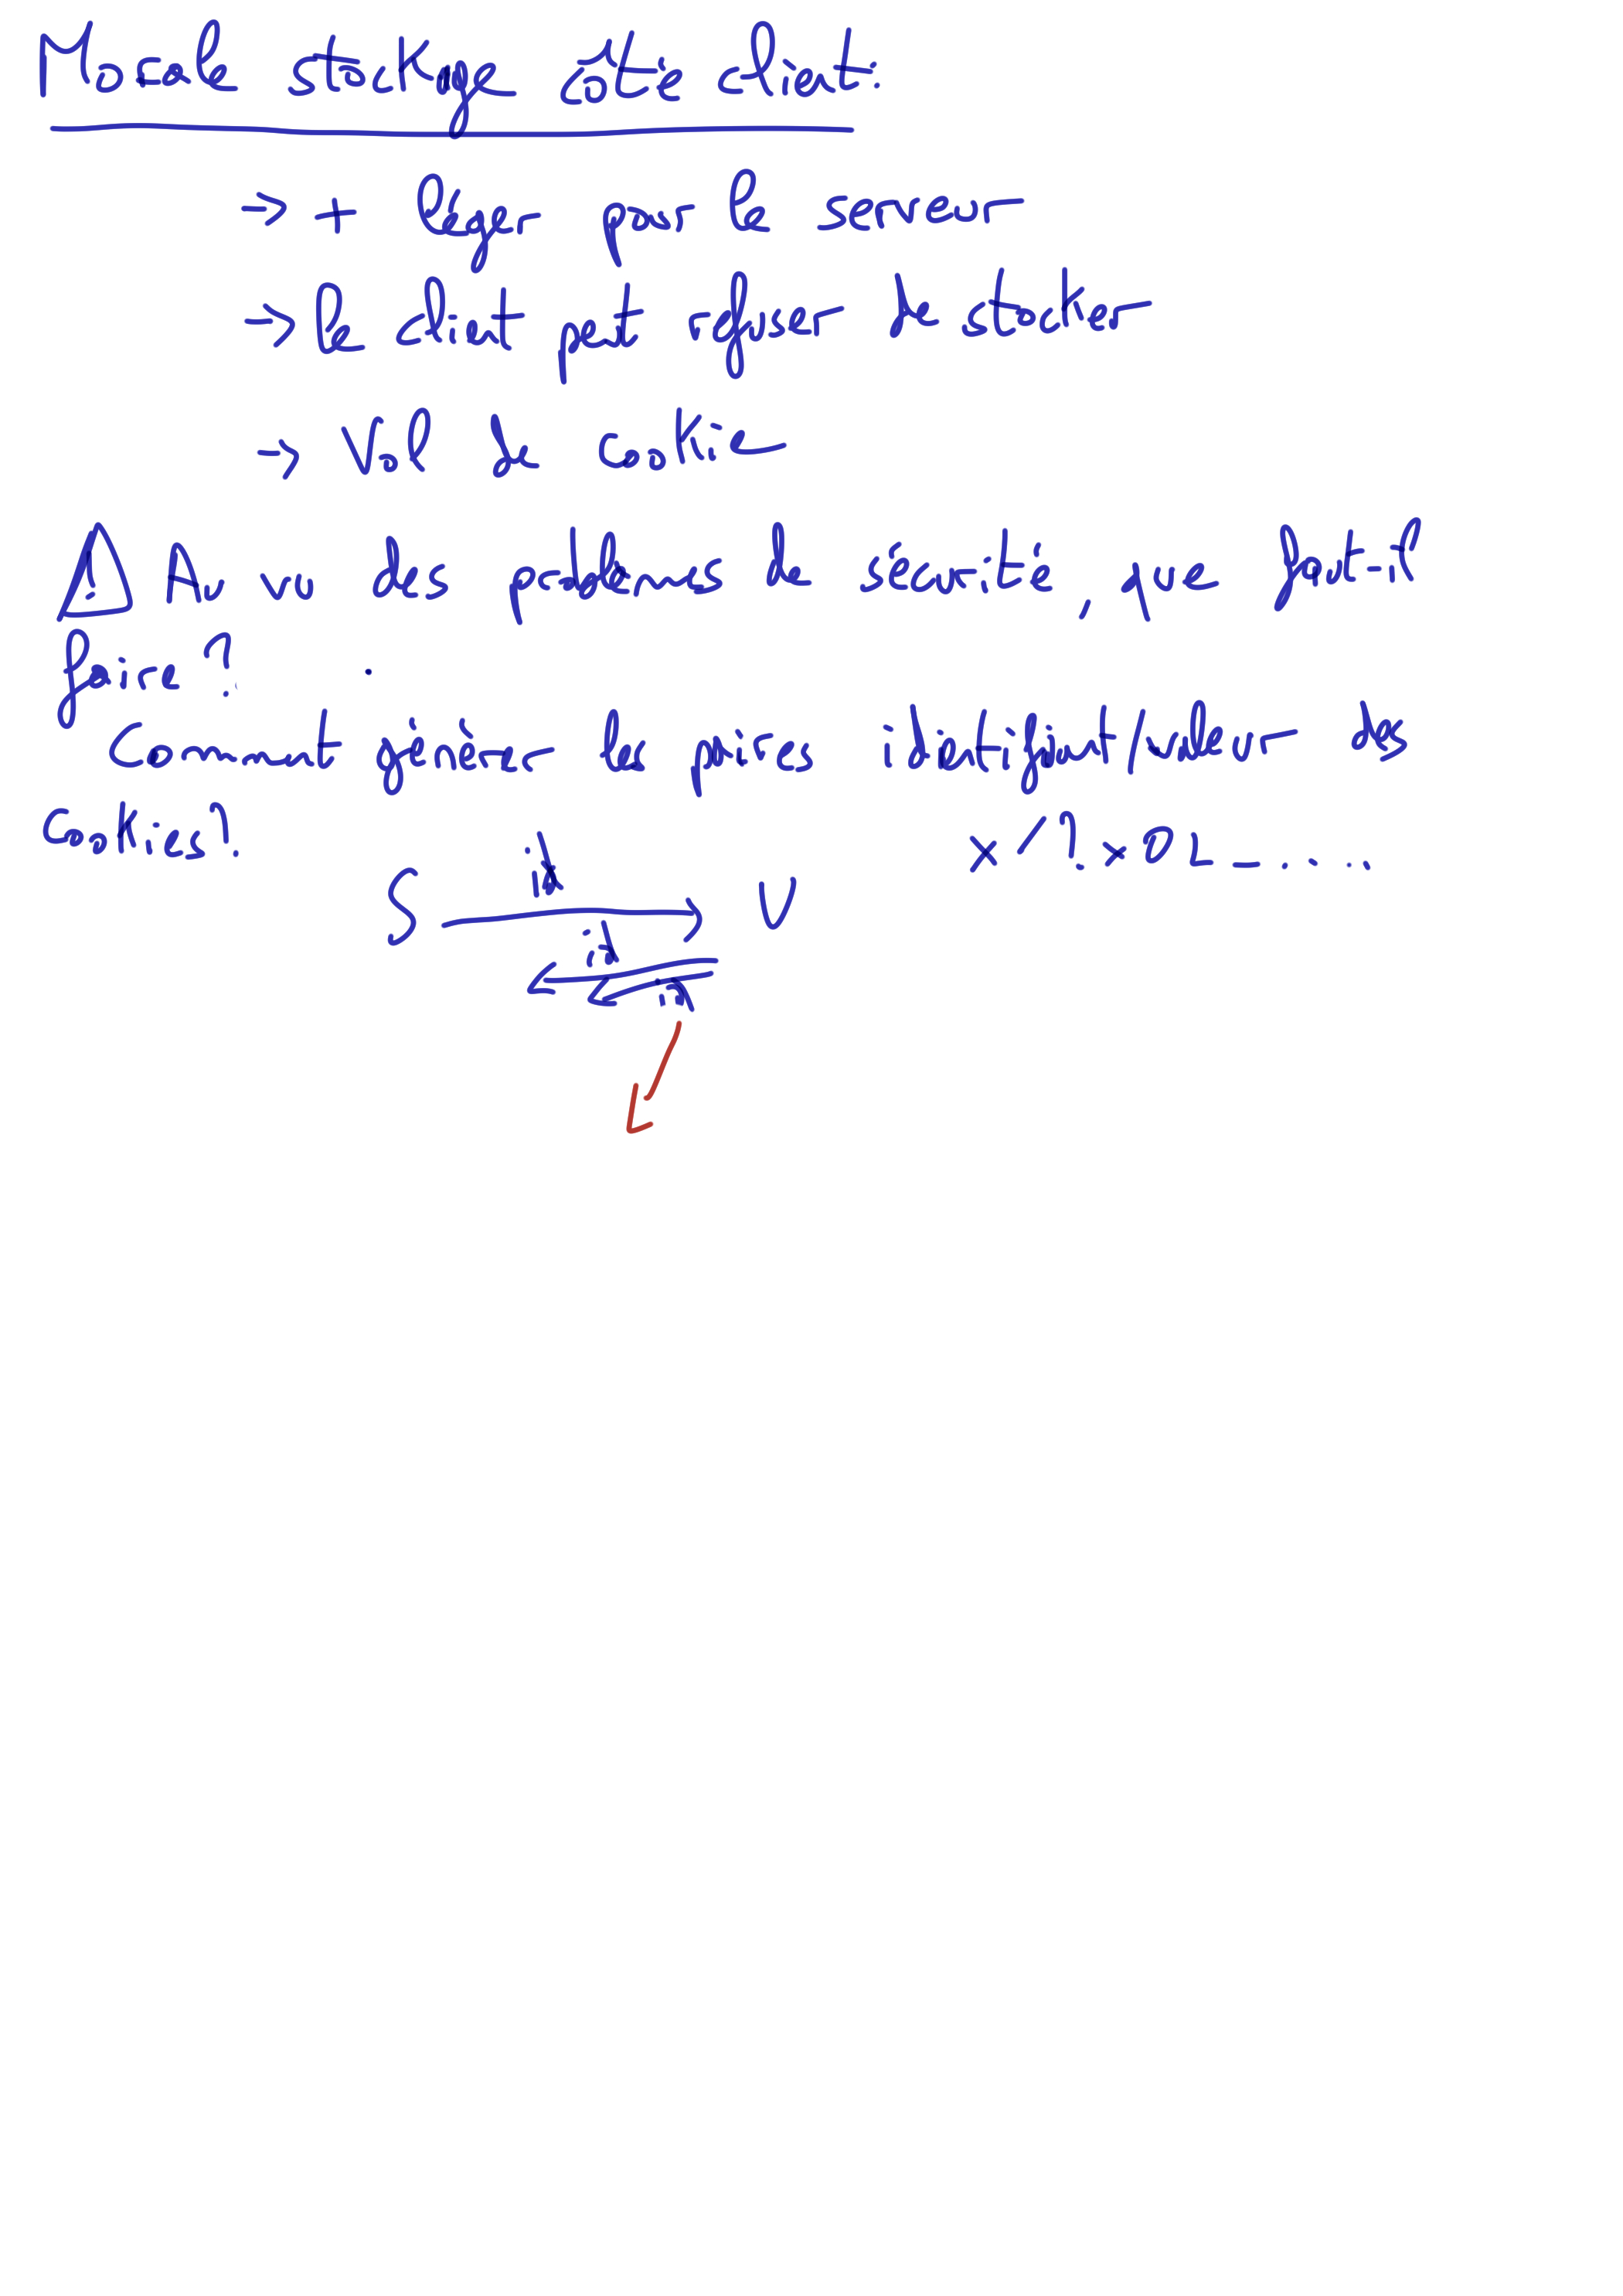 Mode stockage côté client:
→ + léger pour le serveur
→ le client peut refuser de stocker
→ Vol de cookie
⚠ Au vu des problèmes de sécurité, que peut-il
faire ?
Comment générer les paires identifiant/valeur des
Cookies ?
id
S → U
id
id